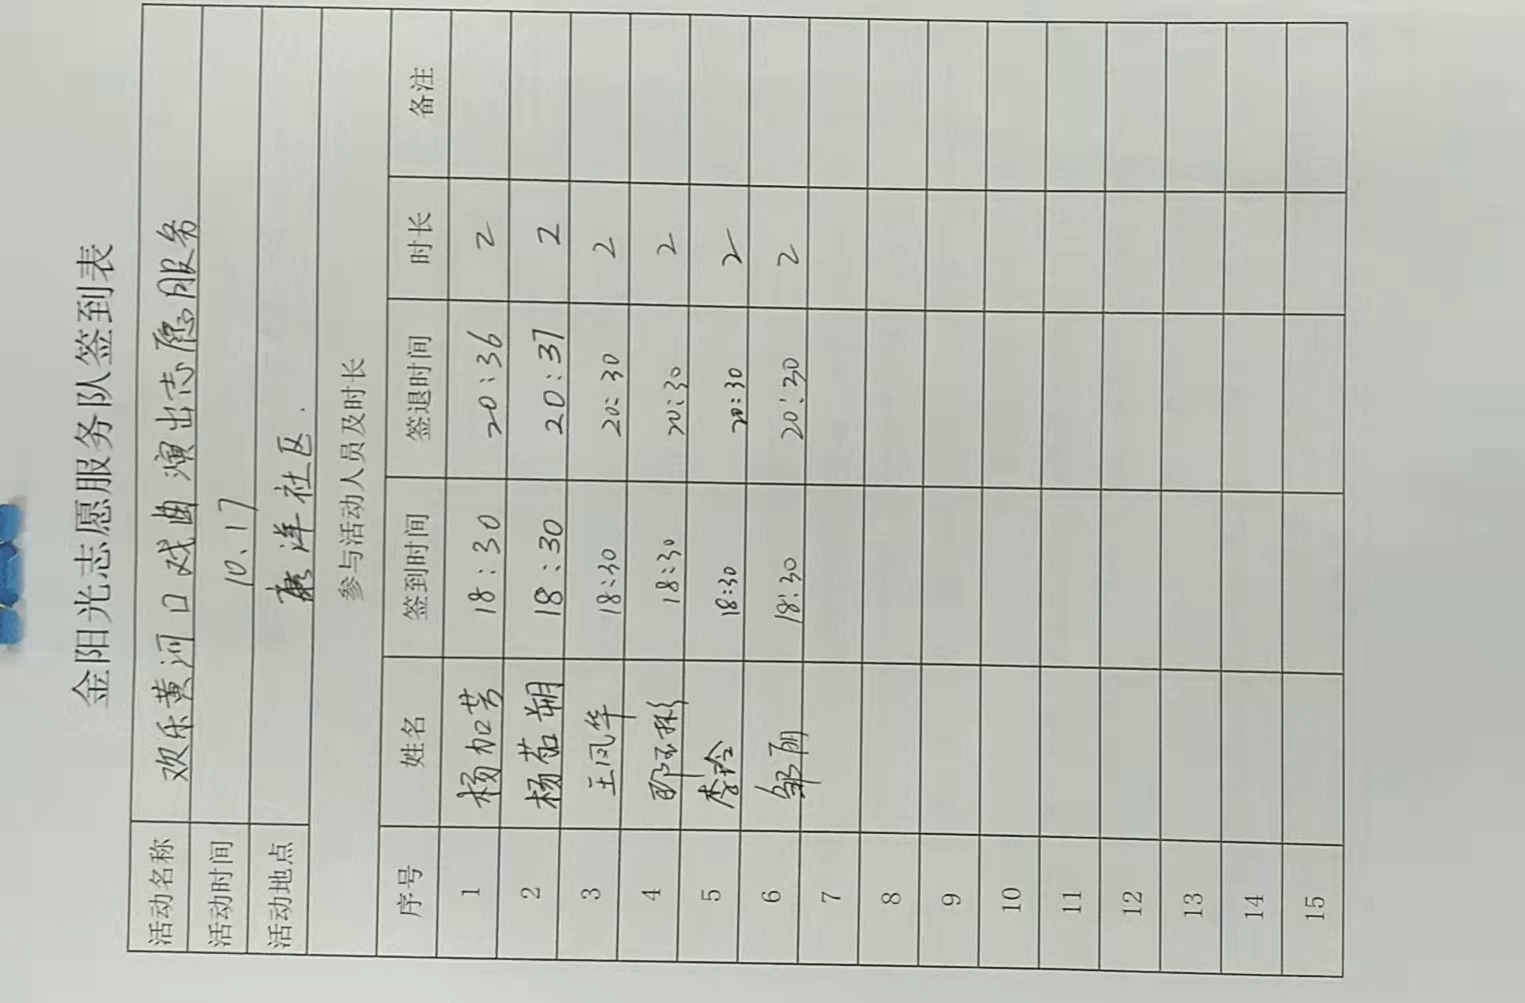 金阳光志愿服务队签到表
活动名称 欢乐黄河口戏曲演出志愿服务
活动时间 10.17
活动地点 洋社区.
参与活动人员及时长
序号 姓名 签到时间 签退时间 时长 备注
1 杨加芸 18:30 20:36 2
2 杨茹朔 18:30 20:37 2
3 王凤华 18:30 20:30 2
4 18:30 20:30 2
5 李玲 18:30 20:30 2
6 邹丽 18:30 20:30 2
7
8
9
10
11
12
13
14
15